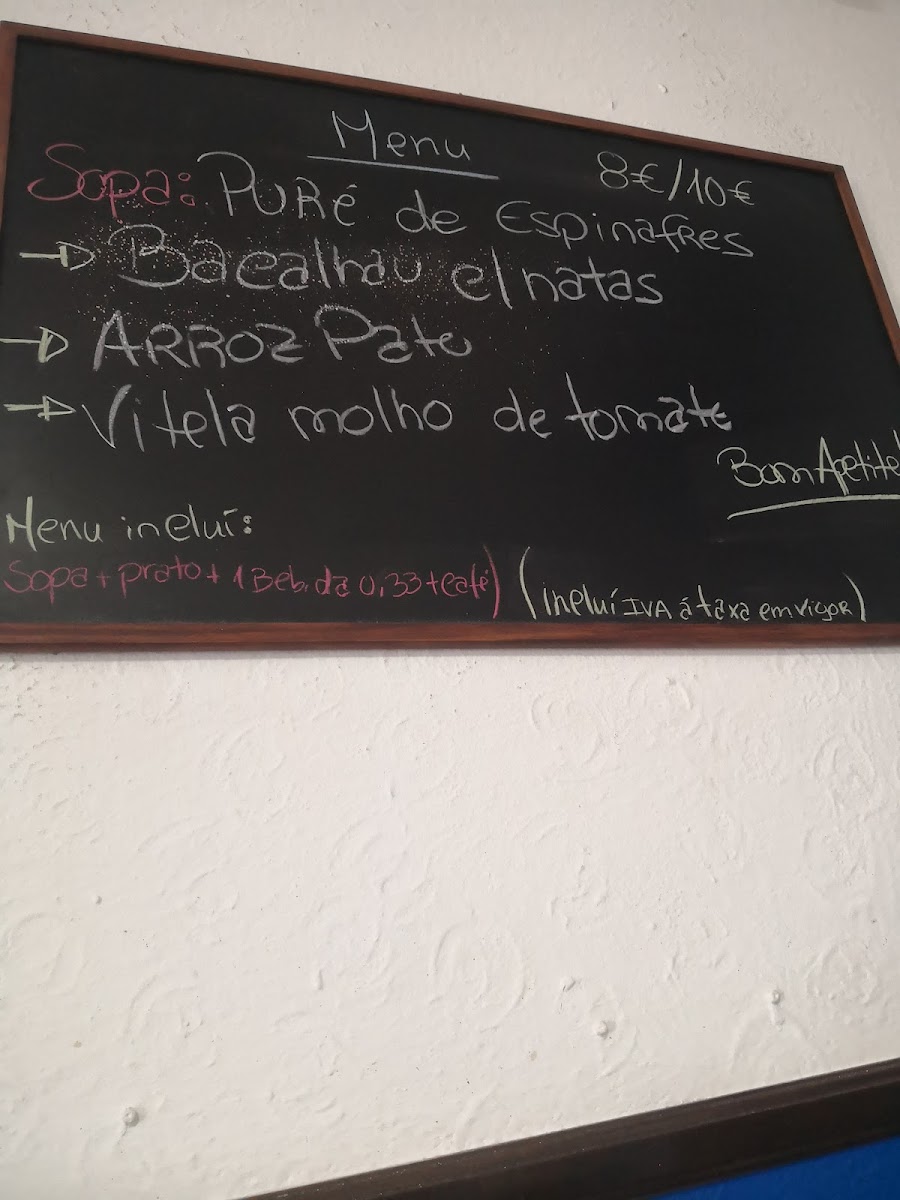 Menu
8€/10€
Sopa: PURé de Espinafres
Bacalhau c/natas
ARROZ Pato
Vitela molho de tomate
Bom Apetite!
Menu incluí:
Sopa + prato + 1 Bebida 0,33 + café)
(incluí IVA á taxa em vigor)